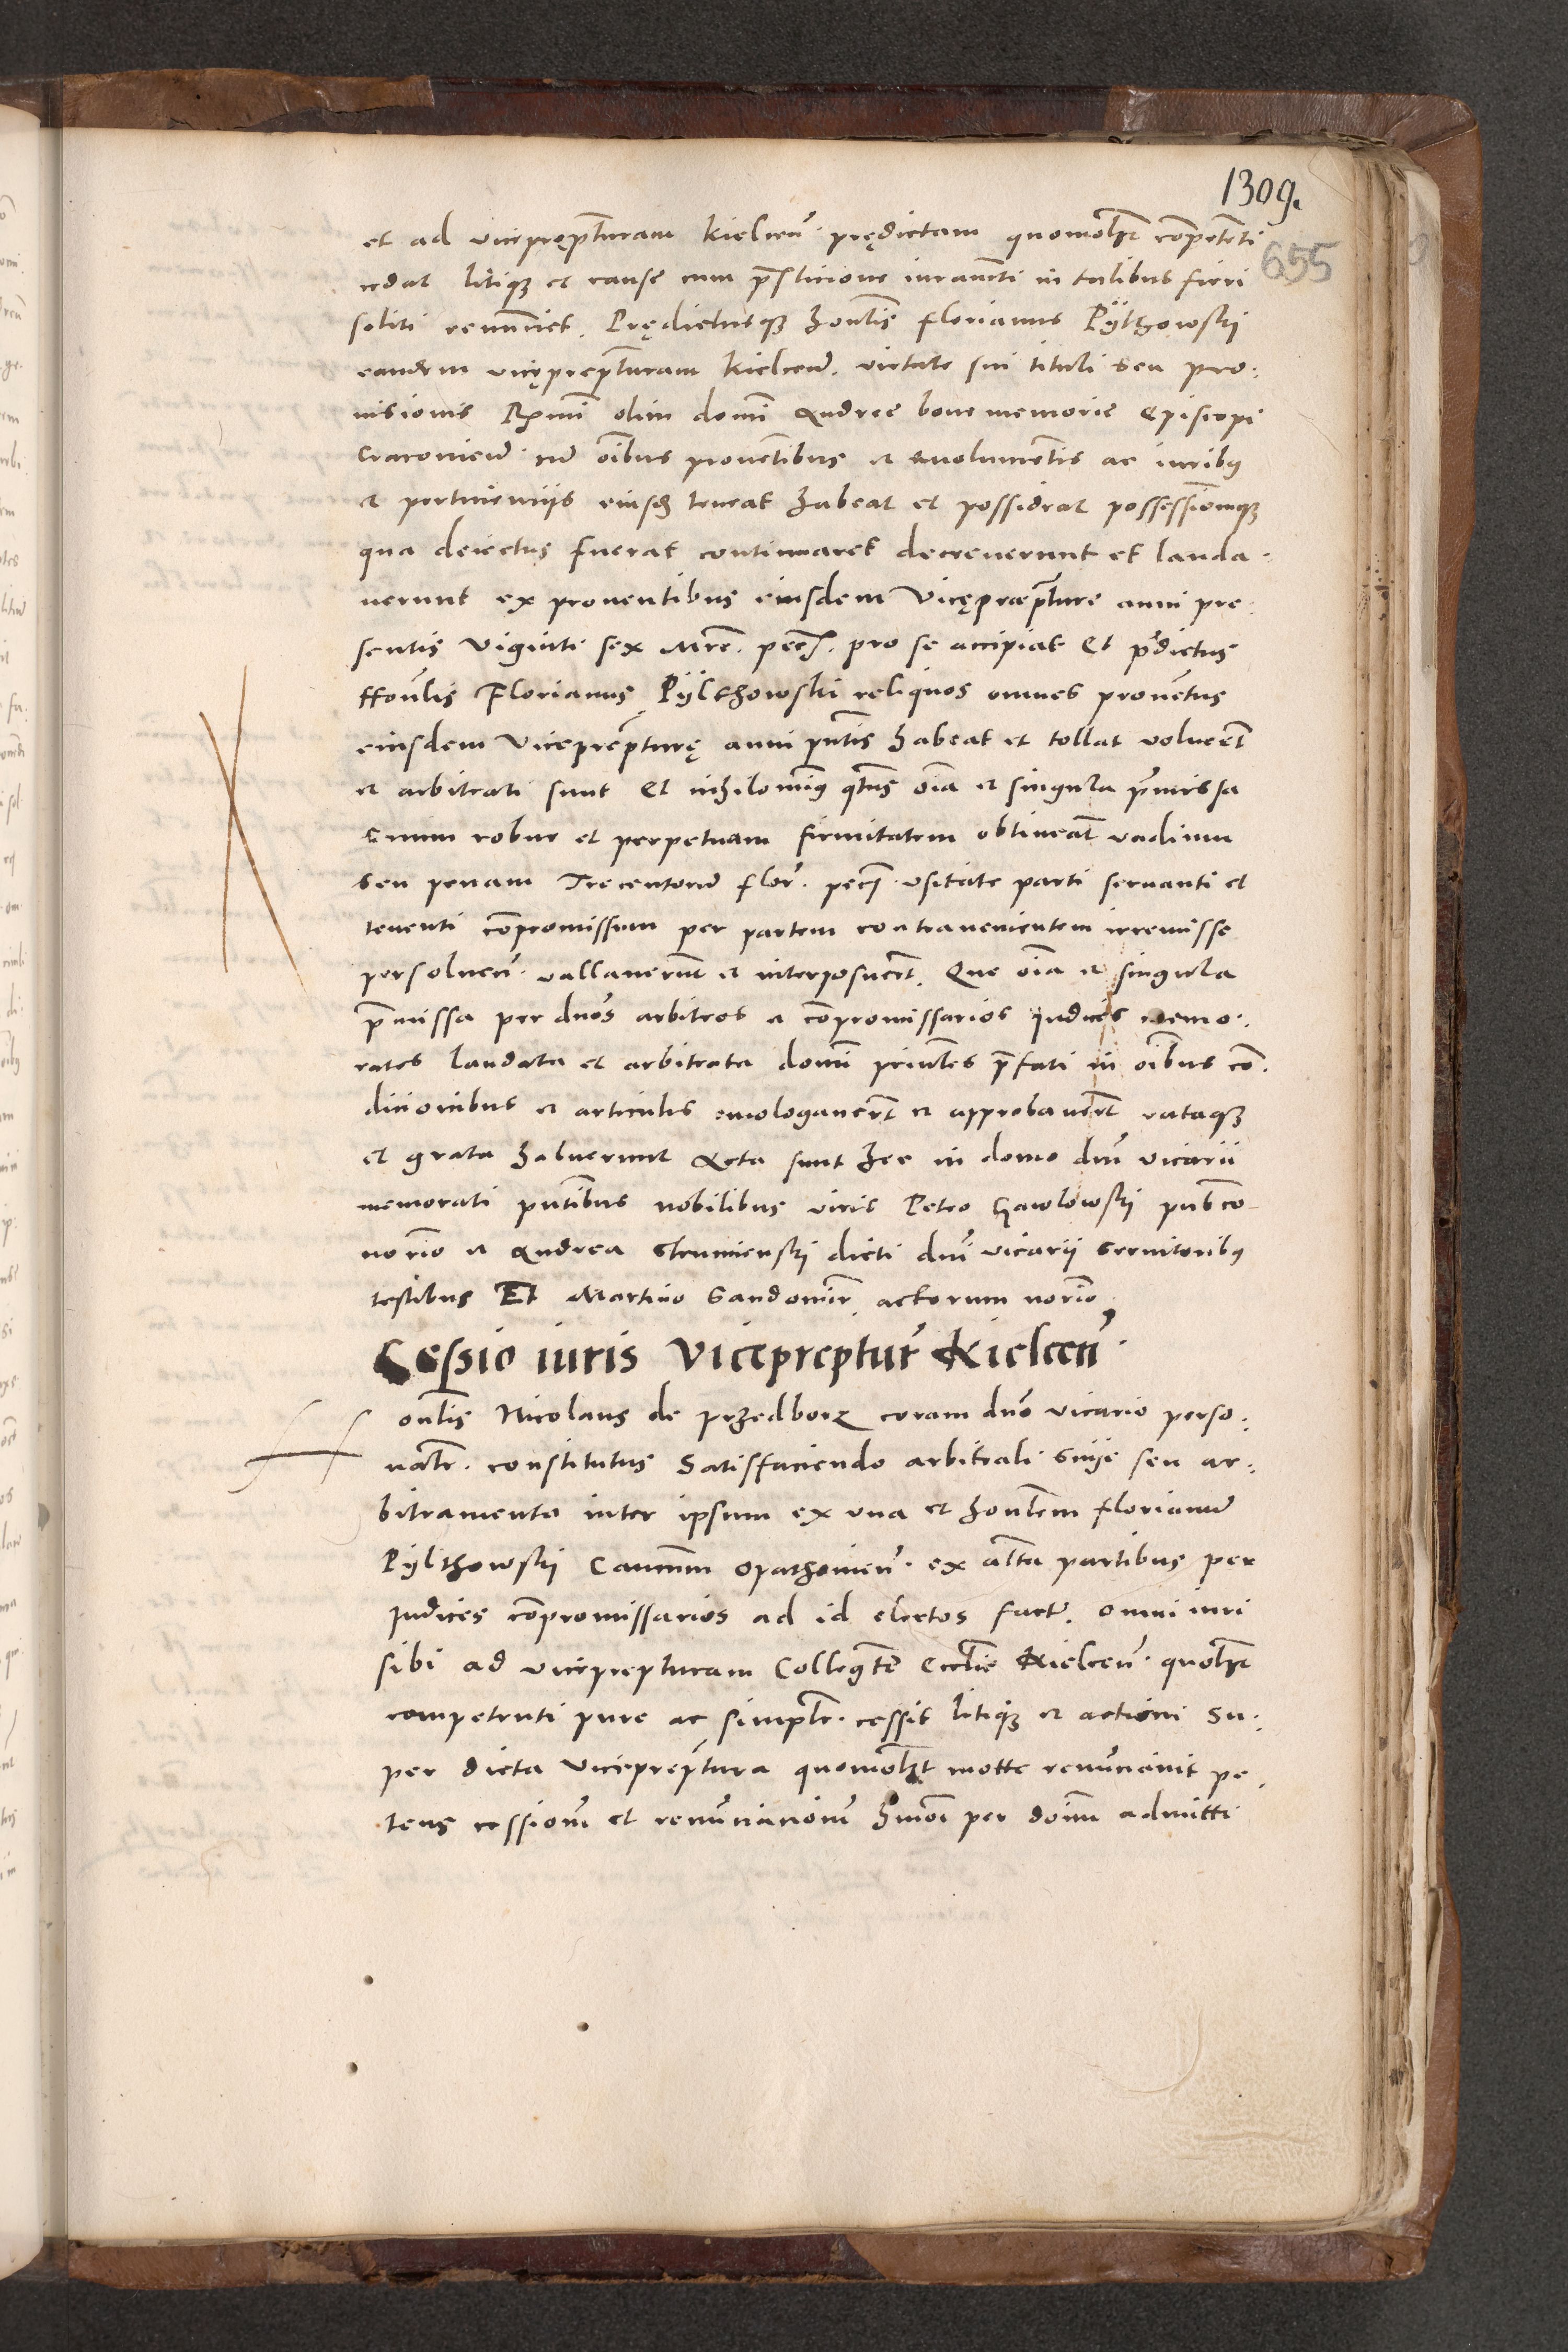 1309.
655
et ad vicepręp̄turam Kielceñ. prędictam quomol̄t compete͞ti
cedat litiq₃ et cause cum p̄stacione iuram̄ti in talibus fieri
soliti renūnciet. Prędictusq₃ honl̄is Florianus Pÿlthowski
eandem vicępręp̄turam Kielceñ. virtute sui tituli seu pro:
uisionis Rp̄mi olim domī Andree bone memorie Episcopi
Cracovieñ cū oībus prouētibus et emolumētis ac iuribꝯ
et pertinenciis eiusd teneat habeat et possideat possessionēq₃
qua deiectus fuerat continuaret decreuerunt et lauda:
uerunt ex prouentibus eiusdem Vicępręp̄ture anni pre:
sentis viginti sex Mrc̄. pec͞. pro se accipiat Et p̄dictus
Honl̄is Florianus Pÿlthowski reliquos omnes prouētus
eiusdem vicepręp̄turę anni pn̄tis habeat et tollat voluer̄t
et arbitrati sunt Et nihilominꝯ qt̄us oīa et singula p̄missa
suum robur et perpetuam firmitatem obtineāt vadium
seu penam Trecentorū flor̄. pec͞. usitate parti seruanti et
tenenti cōpromissum per partem contravenientem irremisse
persoluen̄. vallauerūt et interposuer̄t. Que oīa et singula
p̄missa per dn̄os arbitros et cōpromissarios Judices memo:
ratos laudata et arbitrata domī principales p̄fati in oībus cō:
dicionibus et articulis emologauer̄t et approbauer̄t rataq₃
et grata habuerunt Acta sunt hec in domo dn̄i vicarii
memorati pn̄tibus nobilibus viris Petro Gawlowski publico
nor̄io et Andrea Strumienski dicti dn̄i vicarii seruitoribꝯ
testibus Et Martino Sandomir. actorum nor̄io
Cessio iuris Viceprepture͂ Kielceñ.
onl̄is Nicolaus de Przedborz coram dn̄o vicario perso:
nalr̄. constitutus Satisfaciendo arbitrali sn̄ie seu ar:
bitramento inter ipsum ex una et honl̄em Florianū
Pÿlthowski Canonicum Opathouieñ. ex alt̄a partibus per
Judices cōpromissarios ad id electos factū. omni iuri
sibi ad vicęprepturam Colleḡte Eccl̄ie Kielceñ. quol̄t
competenti pure ac simplr̄. cessit litiq₃ et actioni su:
per dicta viceprep̄tura quomol̄t mote renūnciauit pe:
tens cessionē et renūncianonē hmōi per doīm admitti